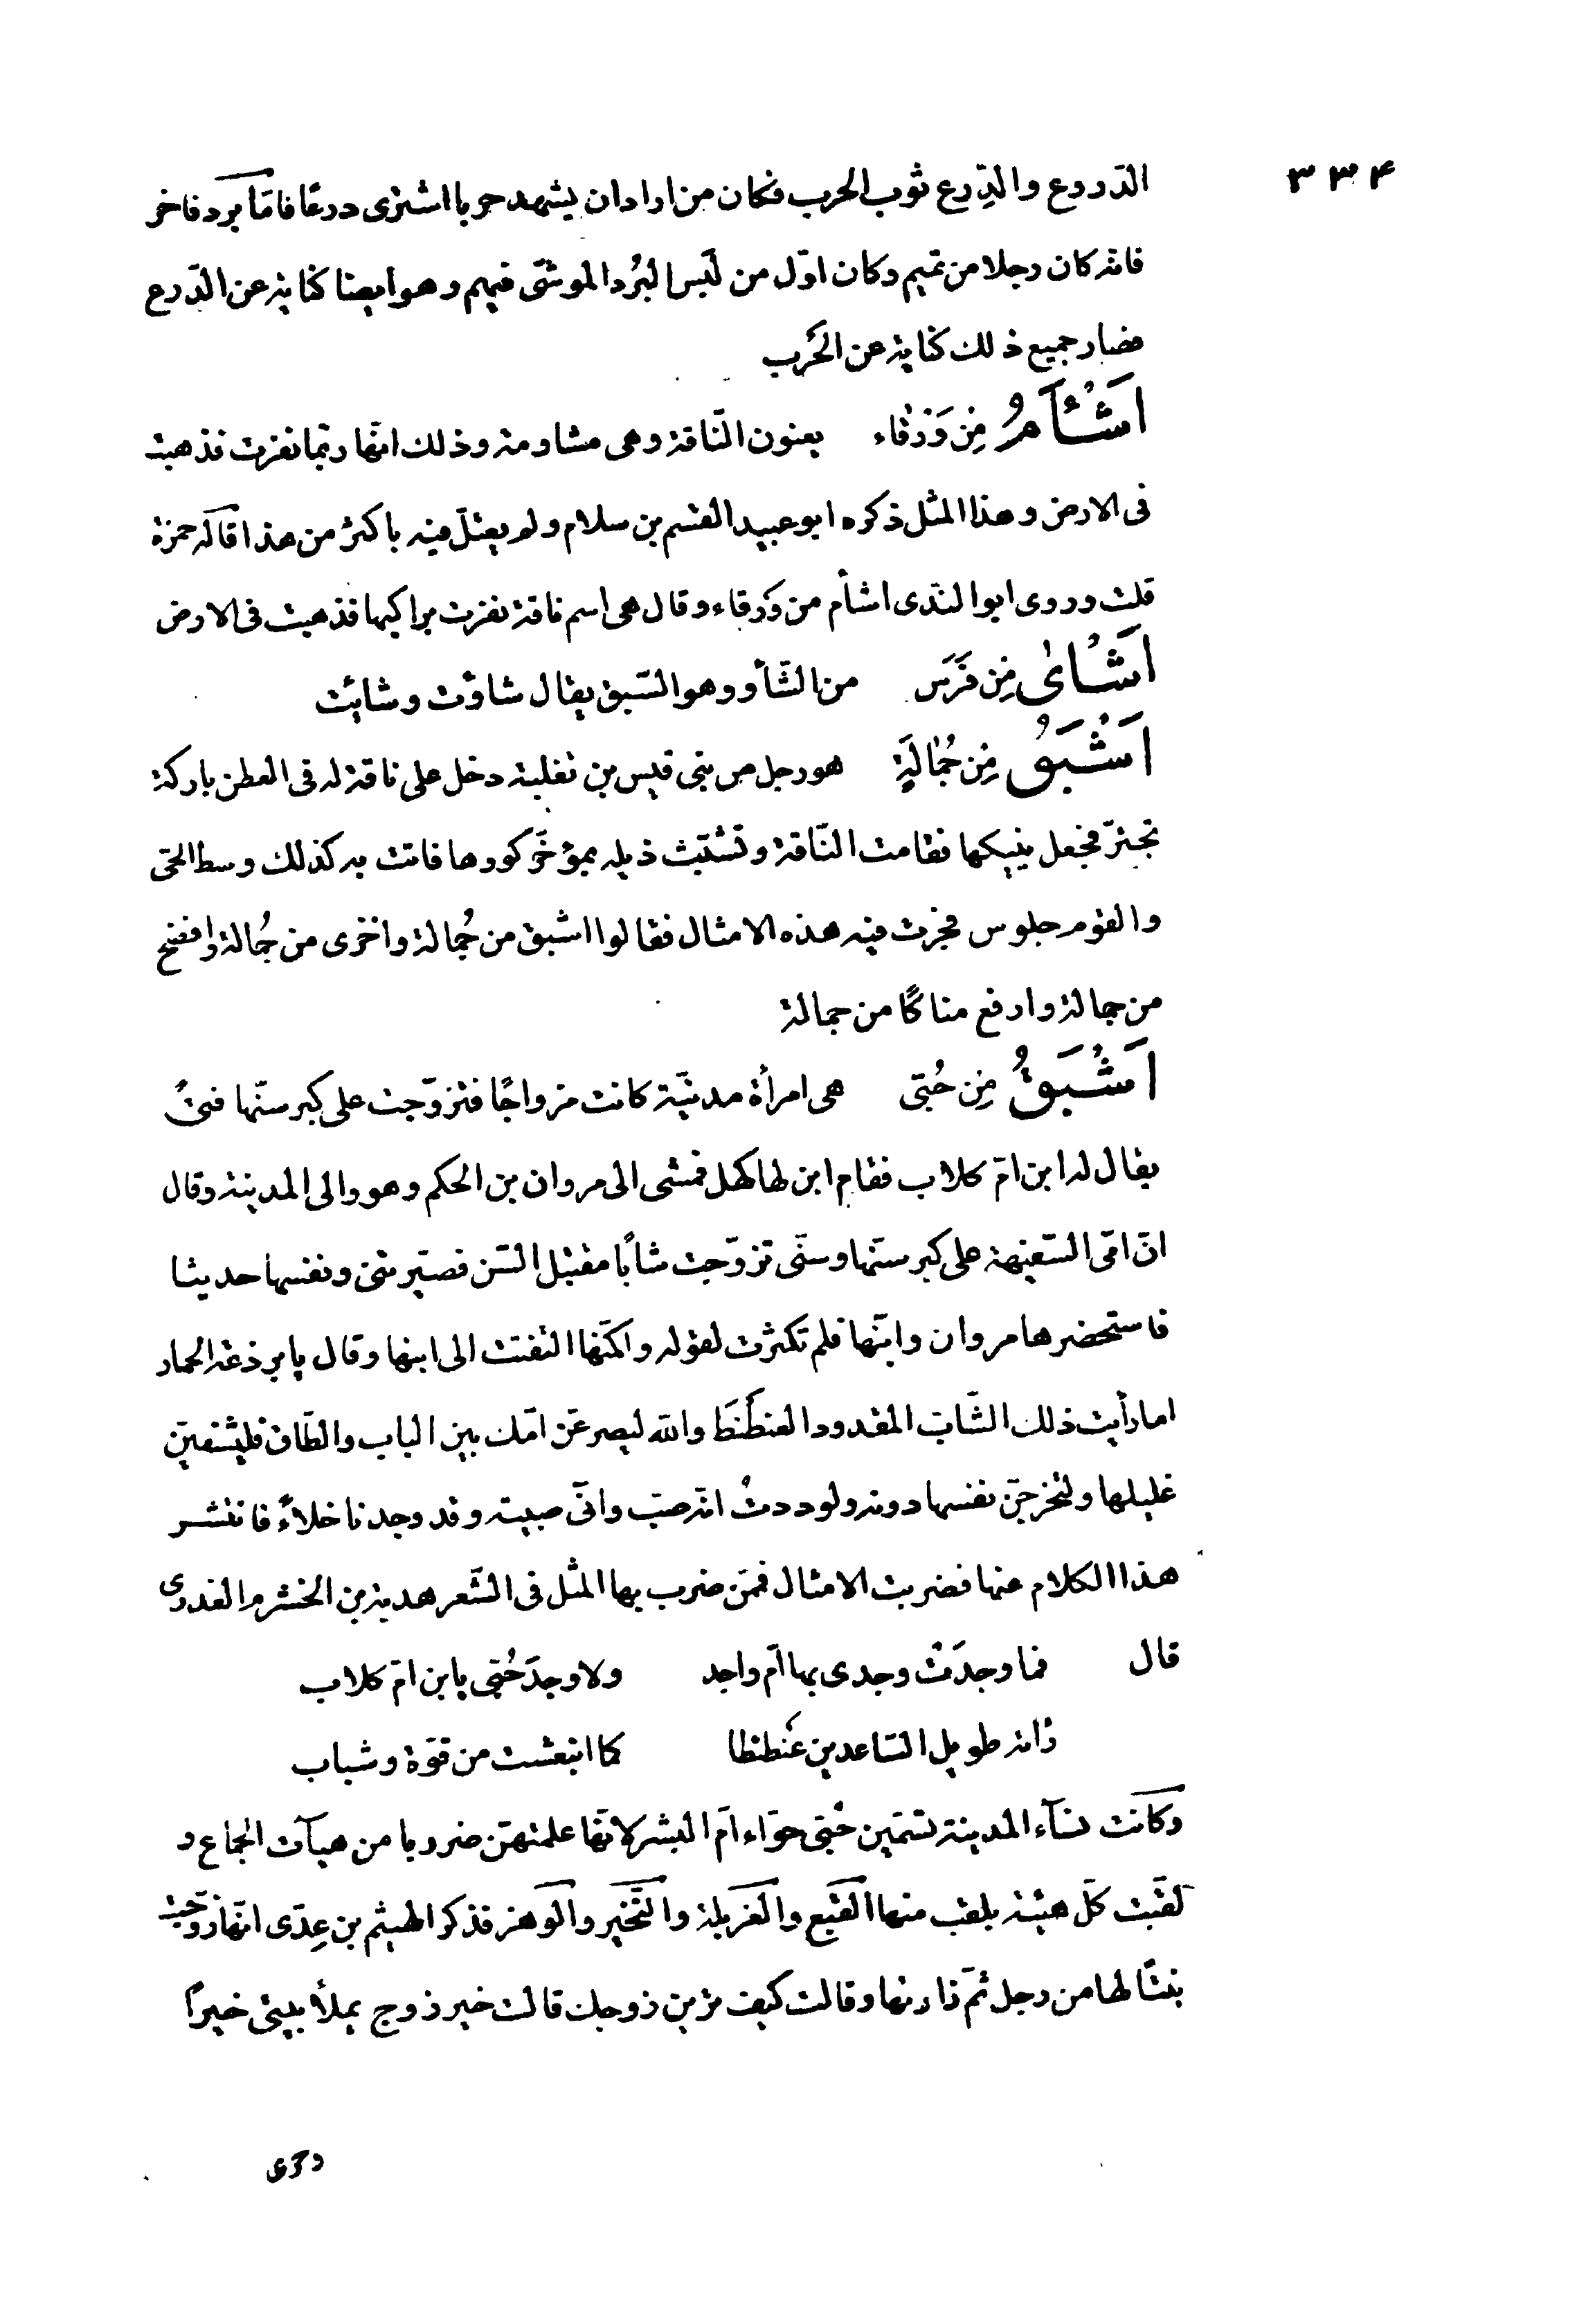 ٣٣۴
الدّروع والدِّرع ثوب الحرب فكان من اراد ان يشهد حربا اشترى درعًا فامّا برد فاخر
فانّه كان رجلا من تميم وكان اوّل من لَبس البُرد الموشّى فيهم وهو ايضا كناية عن الدّرع
فصار جميع ذلك كناية عن الحَرب
اَشْأَمُ مِن وَرْقاء يعنون النّاقة وهى مشاومة وذلك انّها ربّما نفرت فذهبت
فى الارض وهذا المثل ذكره ابو عبيد القسم بن سلام ولم يعتلّ فيه باكثر من هذا قاله حمزة
قلت وروى ابو النّدى اشأم من وَرقاء وقال هى اسم ناقة نفرت براكبها فذهبت فى الارض
اَشْاٰى مِن فَرَس من الشّأو وهو السّبق يقال شاوْت وشايْت
اَشْبَقُ مِن جُمَالَةٍ هو رجل من بنى قيس بن ثعلبة دخل على ناقة له فى العطن باركة
تجترّ فجعل ينيكها فقامت النّاقة وتشبّث ذيله بمؤخّر كورها فاتت به كذلك وسط الحىّ
والقوم جلوس فجرت فيه هذه الامثال فقالوا اشبق من جُمالة واخزى من جُمالة وافضح
من جمالة وارفع مناكًا من جمالة
اَشْبَقُ مِن حُبّى هى امرأة مدنيّة كانت مزواجًا فتزوّجت على كبر سنّها فتىً
يقال له ابن امّ كلاب فقام ابن لها كهل فمشى الى مروان بن الحكم وهو والى المدينة وقال
انّ امّى السّفيهة على كبر سنّها وسنّى تزوّجت شابًّا مقتبل السّن فصيّرتنى ونفسها حديثا
فاستحضرها مروان وابنها فلم تكترث لقوله ولكنّها التفتت الى ابنها وقال يا برذعة الحمار
اما رأيت ذلك الشّابّ المقدود العنطْنَطَ والله ليصرعنّ امّك بين الباب والطّاق فليشفينّ
غليلها ولتخرجنّ نفسها دونه ولوددتُ انّه ضبّ وانّى ضبيبته وقد وجدنا خلاءً فانتشر
هذا الكلام عنها فضربت الامثال فممّن ضرب بها المثل فى الشّعر هدبة بن الخشرم العذرى
قال فما وجدَتْ وجدى بها امّ واجد ولا وجدَ حُبّى بابن امّ كلاب
رأته طويل السّاعدين عَنطنطا كما انبعثت من قوّة وشباب
وكانت نسآء المدينة تسمّين حُبّى حوّاء امّ البشر لانّها علمتهنّ ضروبا من هيآت الجماع و
لقّبت كلّ هيئة بلقب منها القبع والغربلة والنّخير والرّهز فذكر الهيثم بن عدِىّ انّها زوّجت
بنتًا لها من رجل ثمّ زارتها وقالت كيف ترين زوجك قالت خير زوج يملأ بيتى خيرًا